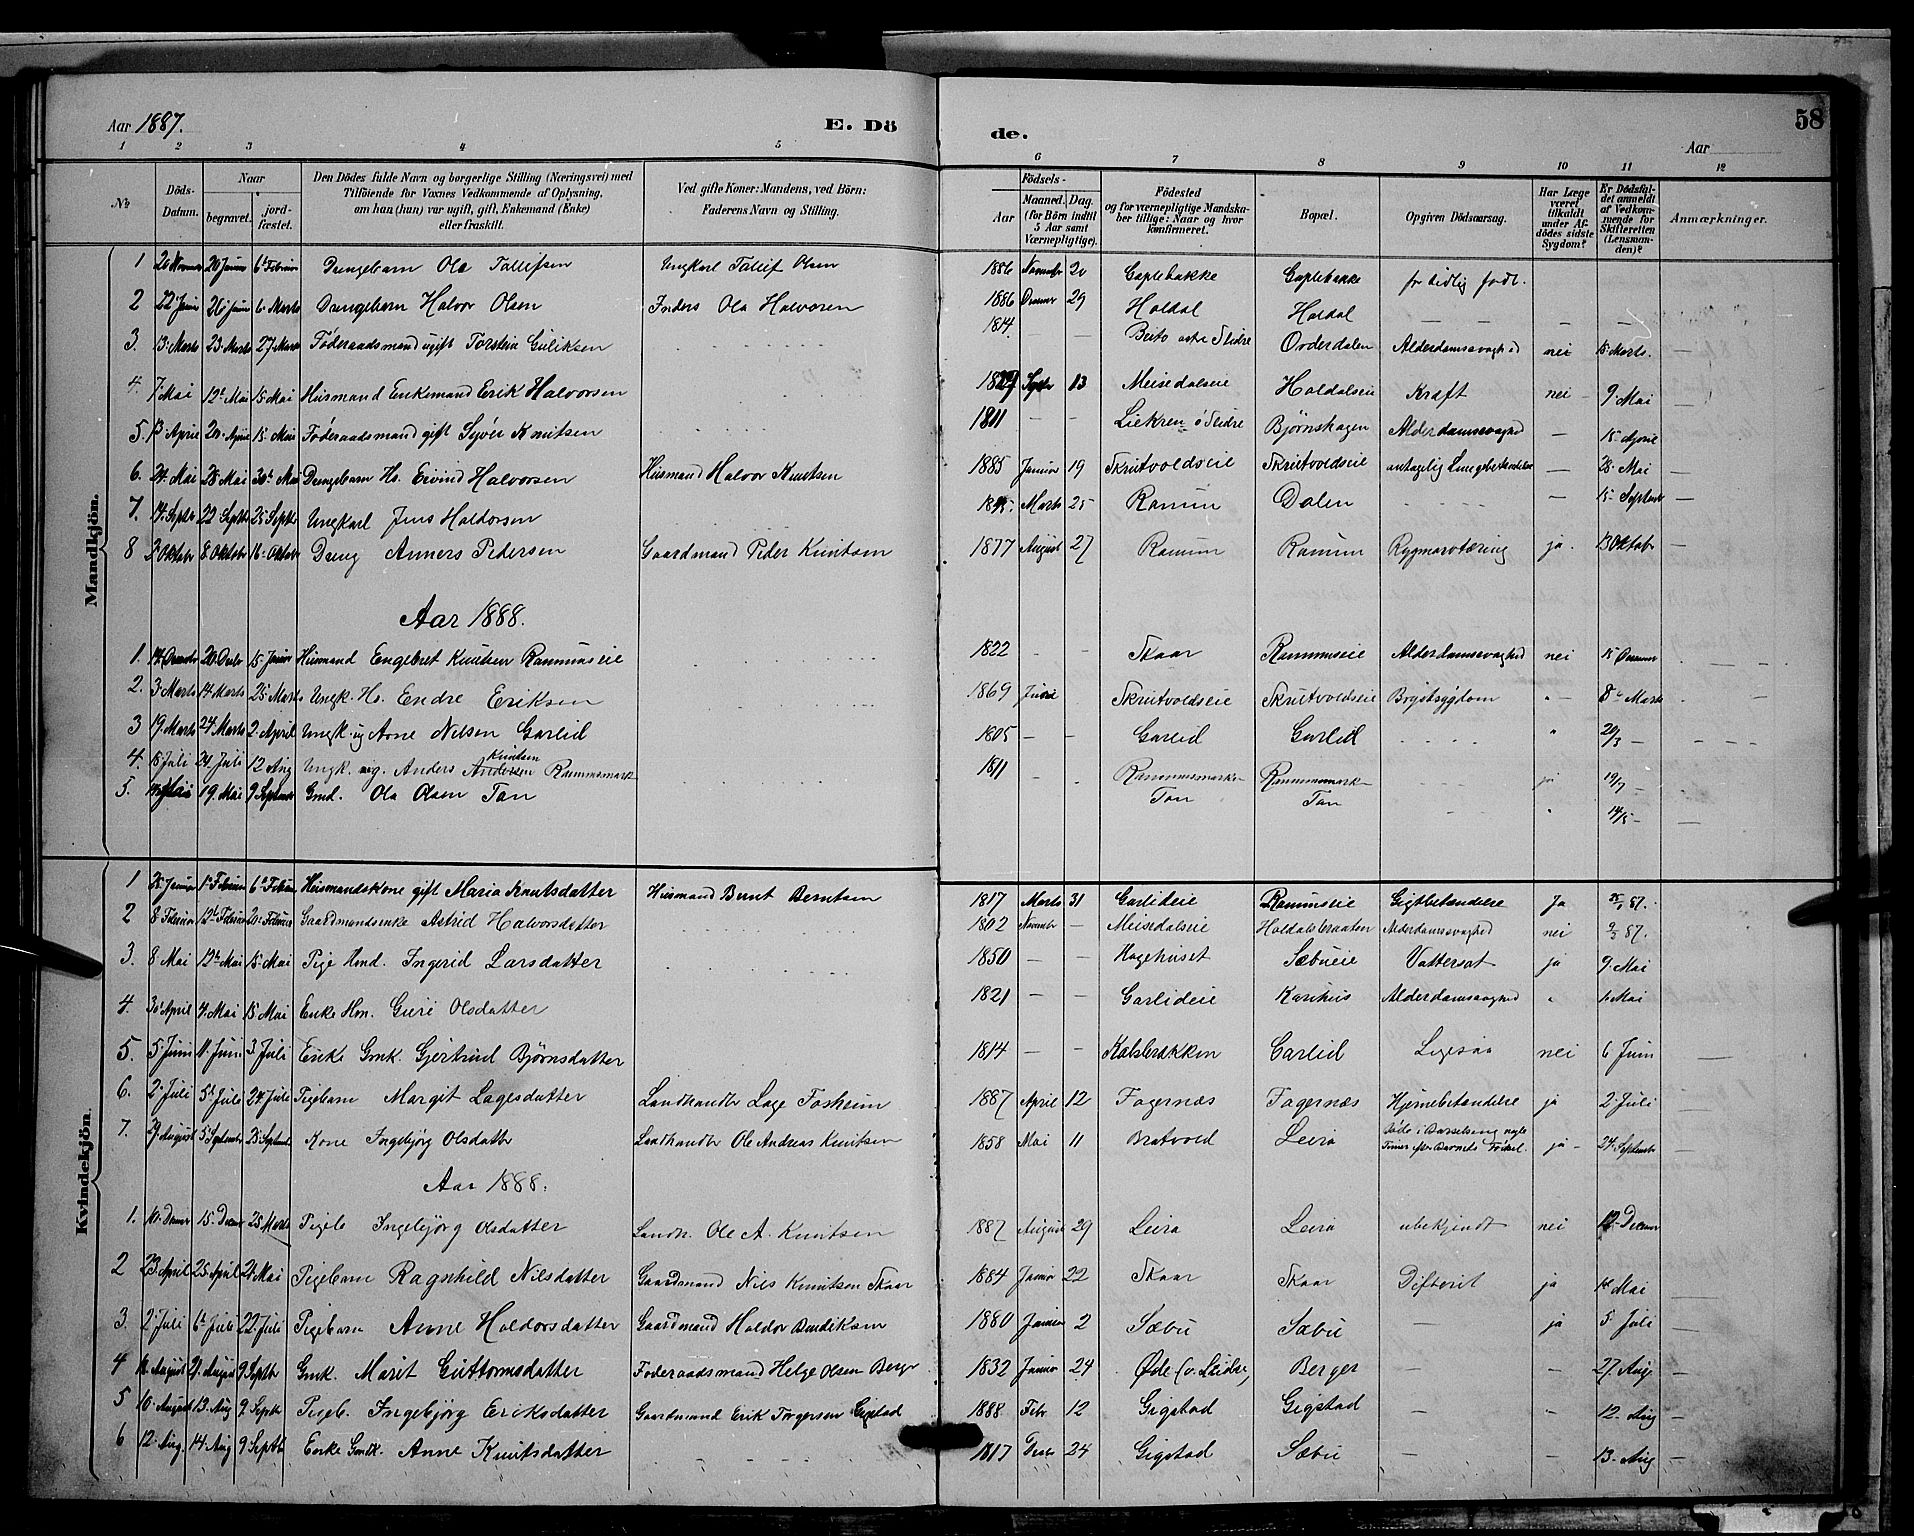 Aar 1887. E. Dö de. Aar 58
1 2 3 4 5 6 7 8 9 10 11 12
No. Döds-Datum. Naar begravet. jordfæstet. Den Dödes fulde Navn og borgerlige Stilling (Næringsvei) med Tilföiende for Voxnes Vedkommende af Oplysning, om han (hun) var ugift, gift, Enkemand (Enke) eller fraskilt. Ved gifte Koner: Mandens, ved Börn: Faderens Navn og Stilling. Födsels- Aar Maaned. Dag. (for Börn indtil 5 Aar samt Værnepligtige). Födested og for værnepligtige Mandskaber tillige: Naar og hvor konfirmeret. Bopæl. Opgiven Dödsaarsag. Har Læge været tilkaldt under Afdödes sidste Sygdom? Er Dödsfaldet anmeldt af Vedkommende for Skifteretten (Lensmanden)? Anmærkninger.
Mandkjön.
1 20 26 6 Drengebarn Ola Ungkarl Olsen 1886 20 Gaplebakke Gaplebakke for tidlig födt.
2 22 26 6 Marts Drengebarn Halvor Olsen Inders Ola Halvorsen 1886 29 Holdal Holdal
3. 13 Marts 23 Marts 27 Föderaadsmand ugift Torstein Guliksen 1814 Beito Slidre Alderdomssvaghed nei 15 Marts.
4. 7 Mai 12 Mai 15 Mai Husmand Enkemand Erik Halvorsen 13 Meisedalseie Holdalseie Kræft nei 9 Mai
5. 13 April 20 April 15 Mai Föderaadsmand gift Syver Knutsen 1811 Slidre Bjørnshagen Alderdomssvaghed 15 April
6. 24 Mai 28 Mai 30 Mai Drengebarn Hs. Eivind Halvorsen Husmand Halvor Knutsen 1885 Januar 19 Skrutvoldseie Skrutvoldseie antagelig Lungebetændelse 28 Mai
7. 14 Septbr 22 Septbr 25 Septbr Ungkarl Jens Haldorsen Marts 25 Ranum Dalen 15 Septbr
8 2 Oktober 8 Oktober 16 Oktober Dreng Anners Pedersen Gaardmand Peder Knutsen 1877 August 27 Ranum Ranum Rygmarvtæring ja. 13 Oktobr
Aar 1888.
1. 14 20 15 Januar Husmand Engebret Knutsen Ranumseie 1822 Skaar Ranumseie Alderdomssvaghed nei 15
2. 3 Marts 14 Marts 25 Marts Ungk. Hs. Endre Eriksen 1869 Skrutvoldseie Skrutvoldseie Brystsygdom 8 Marts
3 19 Marts 24 Marts 2 April Ungk. ug Arne Nilsen Garlid 1805 Garlid Garlid 20/3
4. 18 Juli 24 Juli 12 Aug Ungk. ug. Anders Andersen Knutsen Ranumsmark 1811 Ranumsmark Ranumsmark ja 19/7
5. Mai 19 Mai 9 September Gmd. Ola Olsen Ton Ton Ton 14/5
Kvindekjön.
1 25 Januar 1 Februar 6 Februar Husmandskone gift Maria Knutsdatter Husmand Bernt Berntsen 1817 Marts 31 Garlideie Ranumseie Gigtbetændelse Ja 87.
2 8 Februar 12 Februar 20 Februar Gaardmandsenke Astrid Halvorsdatter 1802 November Meisedalseie Holdalsbraaten Alderdomssvaghed nei 87.
3. 8 Mai 12 Mai 15 Mai Pige Hmd. Ingerid Larsdatter 1850 Hagehuset Sæbueie Vattersot ja 9 Mai
4. 30 April 7 Mai 15 Mai Enke Hm. Guri Olsdatter 1821 Garlideie Karihus Alderdomssvaghed 1 Mai
5. 5 Juni 11 Juni 3 Juli Enke Gmk. Gjertrud Bjørnsdatter 1814 Kalsbrækken Garlid nei 6 Juni
6. 2 Juli 5 Juli 24 Juli Pigebarn Margit Lagesdatter Landhandler Lage Fosheim 1887 April 12 Fagernæs Fagernæs Hjernebetændelse ja 2 Juli
7. 29 August 5 September 25 September Kone Ingebjörg Olsdatter Landhandler Ole Andreas Knutsen 1858 Mai 11 Bratvold Leira Døde i Barselseng nogle Timer efter Barnets Födsel. ja 24 September
Aar 1888.
1. 10 Decmr 15 Decmr 25 Marts Pigeb. Ingebjörg Olsdatter Landh. Ole A. Knutsen 1887 August 29 Leira Leira ubekjendt nei 12 Decmr
2 23 April 25 April 21 Mai Pigebarn Ragnhild Nilsdatter Gaardmand Nils Knutsen Skaar 1884 Januar 22 Skaar Skaar Difterit ja 1 Mai
3. 2 Juli 6 Juli 22 Juli Pigebarn Anne Haldorsdatter Gaardmand Haldor Bendiksen 1880 Januar 2 Sæbu Sæbu ja 5 Juli
4 August 21 August 9 Septbr Gmk. Marit Guttormsdatter Föderaadsmand Helge Olsen Berge 1832 Januar 24 Øde (v. Slidre) Berger 27 Aug
5 10 August 13 Aug 9 Septbr Pigeb. Ingebjörg Eriksdatter Gaardmand Erik Torgersen Gigstad 1888 Febr 12 Gigstad Gigstad 12 Aug
6 12 Aug. 14 Aug 9 Septbr Enke Gmdk. Anne Knutsdatter 1817 24 Gigstad Sæbu 13 Aug